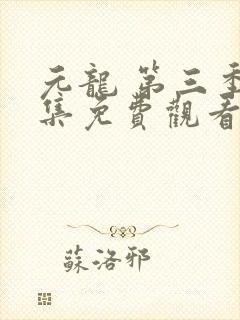 元龍 第三季
集免費觀看
蘇洛邪